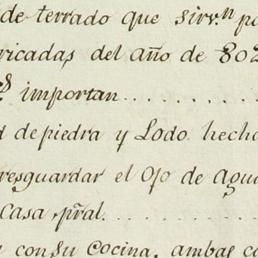 de terrado que sirv.n pa
ricadas del año de 802
importan..........
d de piedra y Lodo hecha
resguardar el Ojo de Agua
Casa pral.........
con su Cocina, ambas ca